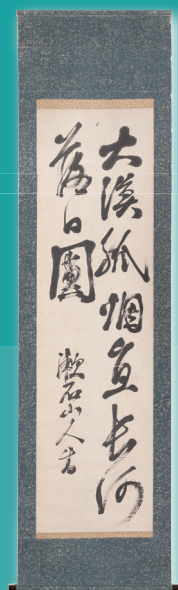 大漠孤烟直長河
落日圓
漱石山人書